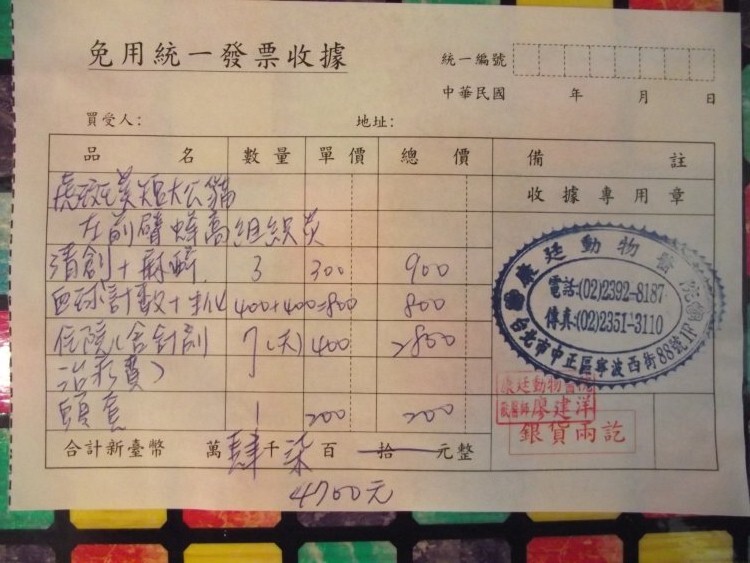 免用統一發票收據
統一編號
中華民國 年 月 日
買受人: 地址:
品名 數量 單價 總價 備註
收據專用章
虎斑美短大公貓
左前臂蜂窩組織炎
清創+麻醉 3 300 900
血球計數+生化 400+400=800 800
住院(含針劑 7(天) 400 2800
治療費)
頭套 1 200 200
合計新臺幣 萬肆千柒百拾元整
4700元
康廷動物醫院
電話:(02)2392-8187
傳真:(02)2351-3110
台北市中正區寧波西街88號1F
康廷動物醫院
獸醫師廖建洋
銀貨兩訖